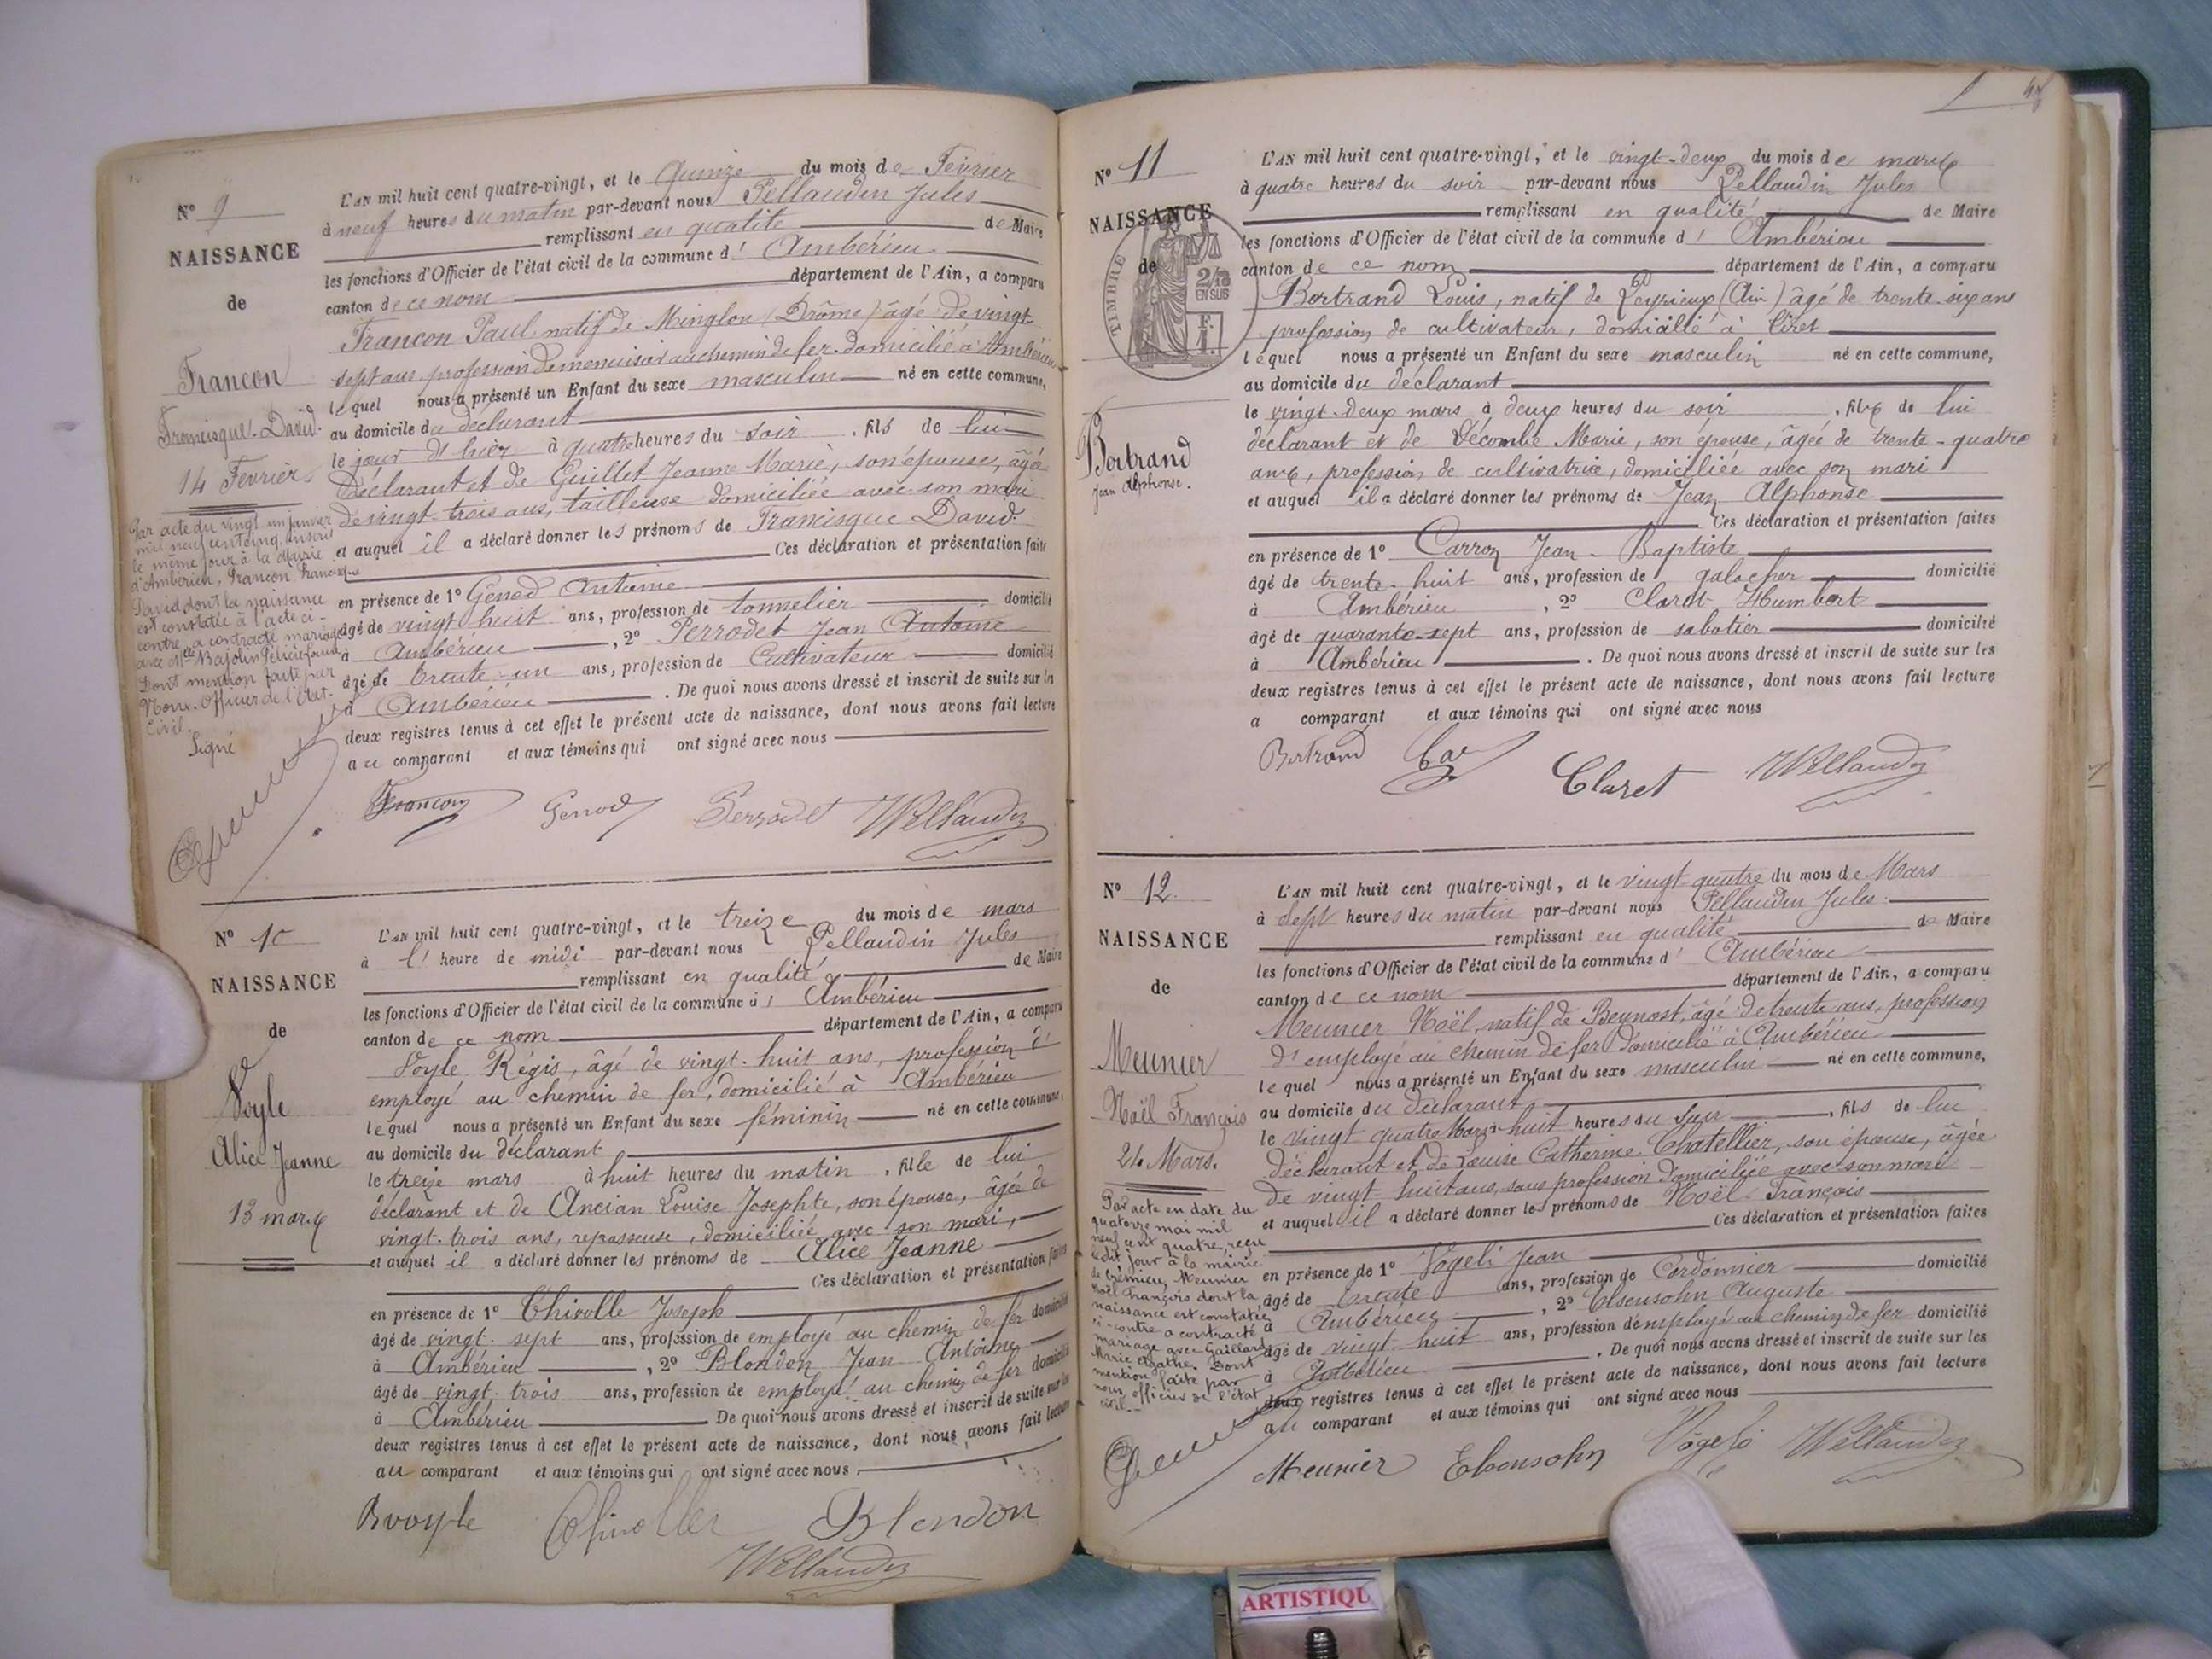 Nº 9
NAISSANCE
de
Francon
Francisque David.
14 Fevrier
Par acte du vingt un janvier
mil neuf cent cinq, inscrit
le même jour à la Mairie
d'Ambérieu, Francon Francisque
David, dont la naissance
est constatée à l'acte ci-
contre a contracté mariage
avec Mlle
Dont mention faite par
Nous. Officier de l'Etat-
Civil.
Signé
L'AN mil huit cent quatre-vingt, et le Quinze du mois de Fevrier
à neuf heures du matin par-devant nous Pellaudin Jules
remplissant en qualité de Maire
les fonctions d'Officier de l'état civil de la commune d' Ambérieu
canton de ce nom département de l'Ain, a comparu
Francon Paul natif de Minglon (Drôme) âgé de vingt
sept ans profession de menuisier au chemin de fer domicilié à Ambérieu
lequel nous a présenté un Enfant du sexe masculin né en cette commune,
au domicile du déclarant
le jour d'hier à quatre heures du soir, fils de lui
déclarant et de Guillet Jeanne Marie, son épouse, âgée
de vingt-trois ans, tailleuse domiciliée avec son mari
et auquel il a déclaré donner les prénoms de Francisque David.
Ces déclaration et présentation faite
en présence de 1º Genod Antoine
âgé de vingt huit ans, profession de tonnelier domicilié
à Ambérieu, 2º Perrodet Jean Antoine
âgé de trente-un ans, profession de Cultivateur domicilié
à Ambérieu. De quoi nous avons dressé et inscrit de suite sur les
deux registres tenus à cet effet le présent acte de naissance, dont nous avons fait lecture
au comparant et aux témoins qui ont signé avec nous
Francon Genod Perrodet Pellaudin
Nº 10
NAISSANCE
de
Voyle
Alice Jeanne
13 mars
L'AN mil huit cent quatre-vingt, et le treize du mois de mars
à l'heure de midi par-devant nous Pellaudin Jules
remplissant en qualité de Maire
les fonctions d'Officier de l'état civil de la commune d' Ambérieu
canton de ce nom département de l'Ain, a comparu
Voyle Régis, âgé de vingt-huit ans, profession d'
employé au chemin de fer, domicilié à Ambérieu
lequel nous a présenté un Enfant du sexe féminin né en cette commune,
au domicile du déclarant
le treize mars à huit heures du matin, fille de lui
déclarant et de Ancian Louise Josephte, son épouse, âgée de
vingt-trois ans, repasseuse, domiciliée avec son mari,
et auquel il a déclaré donner les prénoms de Alice Jeanne
Ces déclaration et présentation faites
en présence de 1º Chivolle Joseph
âgé de vingt-sept ans, profession de employé au chemin de fer domicilié
à Ambérieu, 2º Blondon Jean Antoine
âgé de vingt-trois ans, profession de employé au chemin de fer domicilié
à Ambérieu De quoi nous avons dressé et inscrit de suite sur les
deux registres tenus à cet effet le présent acte de naissance, dont nous avons fait lecture
au comparant et aux témoins qui ont signé avec nous.
Rvoyle Chivolle Blondon
Pellaudin
Nº 11
NAISSANCE
de
TIMBRE
2/10
EN SUS
F.
1.
Bertrand
Jean Alphonse.
L'AN mil huit cent quatre-vingt, et le vingt-deux du mois de mars
à quatre heures du soir par-devant nous Pellaudin Jules
remplissant en qualité de Maire
les fonctions d'Officier de l'état civil de la commune d' Ambérieu
canton de ce nom département de l'Ain, a comparu
Bertrand Louis, natif de Leyrieux (Ain) âgé de trente-six ans
profession de cultivateur, domicilié à Tiret
lequel nous a présenté un Enfant du sexe masculin né en cette commune,
au domicile du déclarant
le vingt-deux mars à deux heures du soir, fils de lui
déclarant et de Décombe Marie, son épouse, âgée de trente-quatre
ans, profession de cultivatrice, domiciliée avec son mari
et auquel il a déclaré donner les prénoms de Jean Alphonse
Ces déclaration et présentation faites
en présence de 1º Carron Jean-Baptiste
âgé de trente-huit ans, profession de galocher domicilié
à Ambérieu, 2º Claret Humbert
âgé de quarante-sept ans, profession de sabotier domicilié
à Ambérieu. De quoi nous avons dressé et inscrit de suite sur les
deux registres tenus à cet effet le présent acte de naissance, dont nous avons fait lecture
a comparant et aux témoins qui ont signé avec nous
Bertrand Claret Pellaudin
Nº 12
NAISSANCE
de
Meunier
Noël François
24 Mars.
Par acte en date du
quatorze mai mil
neuf cent quatre, reçu
le dit jour à la mairie
de Crémieu, Meunier
Noël François dont la
naissance est constatée
ci-contre a contracté
mariage avec Gaillard
Marie Agathe. Dont
mention faite par
nous officier de l'état
civil.
L'AN mil huit cent quatre-vingt, et le vingt quatre du mois de Mars
à Sept heures du matin par-devant nous Pellaudin Jules
remplissant en qualité de Maire
les fonctions d'Officier de l'état civil de la commune d' Ambérieu
canton de ce nom département de l'Ain, a comparu
Meunier Noël, natif de Beynost, âgé de trente ans, profession
d'employé au chemin de fer Domicilié à Ambérieu
lequel nous a présenté un Enfant du sexe masculin né en cette commune,
au domicile du déclarant
le vingt quatre Mars à huit heures du soir, fils de lui
déclarant et de Louise Catherine Chatellier, son épouse, âgée
de vingt huit ans, sans profession domiciliée avec son mari
et auquel il a déclaré donner les prénoms de Noël François
Ces déclaration et présentation faites
en présence de 1º Vögeli Jean
âgé de trente ans, profession de Cordonnier domicilié
à Ambérieu, 2º Ebensohn Auguste
âgé de vingt huit ans, profession d'employé au chemin de fer domicilié
à Ambérieu. De quoi nous avons dressé et inscrit de suite sur les
deux registres tenus à cet effet le présent acte de naissance, dont nous avons fait lecture
au comparant et aux témoins qui ont signé avec nous
Meunier Ebensohn Vögeli Pellaudin
ARTISTIQU